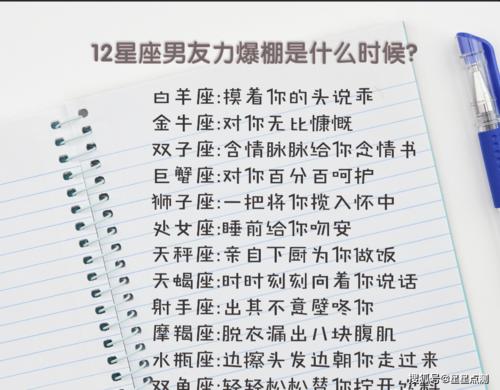 12星座男友力爆棚是什么时候?
白羊座:摸着你的头说乖
金牛座:对你无比慷慨
双子座:含情脉脉给你念情书
巨蟹座:对你百分百呵护
狮子座:一把将你揽入怀中
处女座:睡前给你吻安
天秤座:亲自下厨为你做饭
天蝎座:时时刻刻向着你说话
射手座:出其不意壁咚你
摩羯座:脱衣漏出八块腹肌
水瓶座:边擦头发边朝你走过来
双鱼座:轻轻松松替你拧开饮料
搜狐号@星星点测